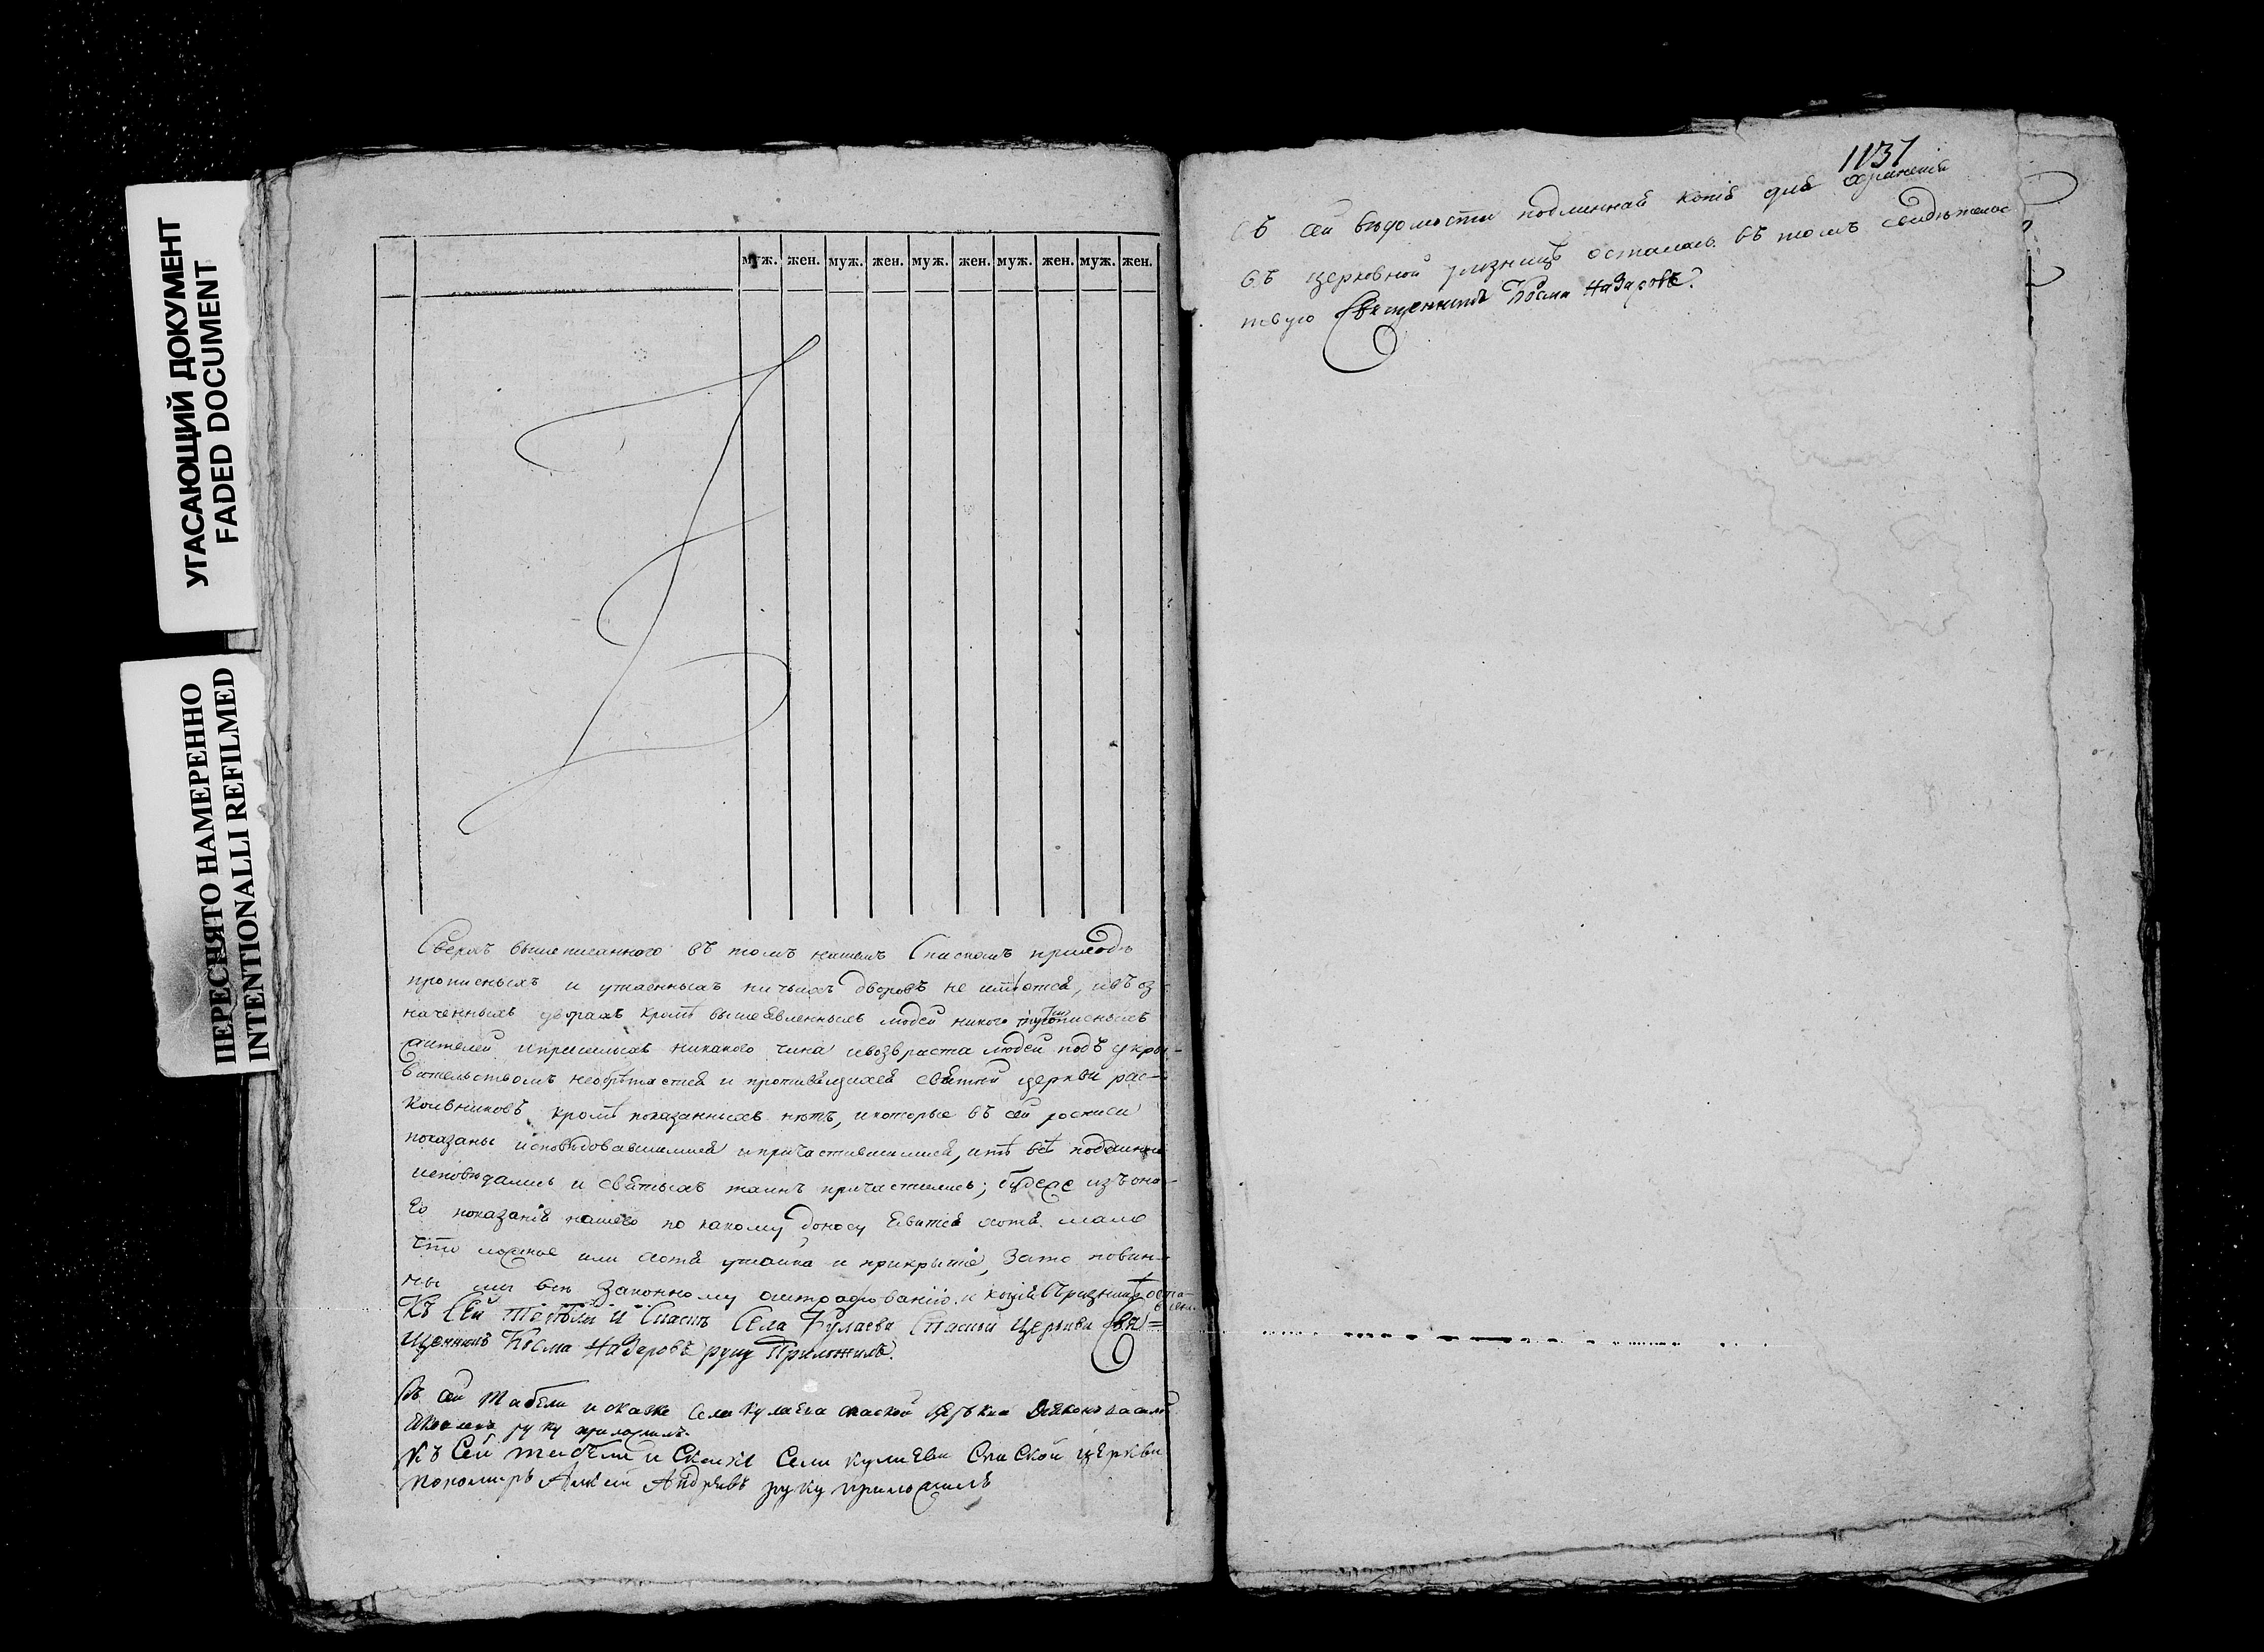 УГАСАЮЩИЙ ДОКУМЕНТ
FADED DOCUMENT
ПЕРЕСНЯТО НАМЕРЕННО
INTENTIONALLI REFILMED
муж. жен. муж. жен. муж. жен. муж. жен. муж. жен.
Сверхъ вышеписанного въ томъ нашемъ Спаскомъ приходѣ
прописныхъ и утаенныхъ ничьихъ дворовъ не имѣется, ивъ оз-
наченныхъ дворахъ кромѣ вышеявленныхъ людей никого
жителей ипришлыхъ никакого чина ивозвраста людей подъ укры-
вательствомъ необрѣтается и противящихся святѣй церкви рас-
кольниковъ кромѣ показанныхъ нѣтъ, икоторые въ сей росписи
показаны исповѣдовавшимися ипричастившимися, итѣ всѣ подлинно
исповѣдались и святыхъ таинъ причастились; будеже изъ оно-
го показанія нашего по какому доносу явится хотя мало
что ложное или хотя утайка и прикрытіе, Зато повин-
ны мы всѣ Законному оштрафованію. и копія въ ризницѣ оста-
влена.
Къ Сей табѣли И Села Кулаева Спаской Церькви Свя=
щенникъ Косма Назаровъ руку Приложилъ.
Къ сей табели и скаске Села Кулаева спаской церькви Дьяконъ василей
руку приложилъ
Къ Сей табели и Скаске Села кулаева Спаской церкви
пономарь Алексей Андреевъ руку приложилъ
1137
Съ сей вѣдомости подлинная копія для храненія
въ церковной ризницѣ осталась въ томъ свидѣтельс
твую Священникъ Косма Назаровъ.